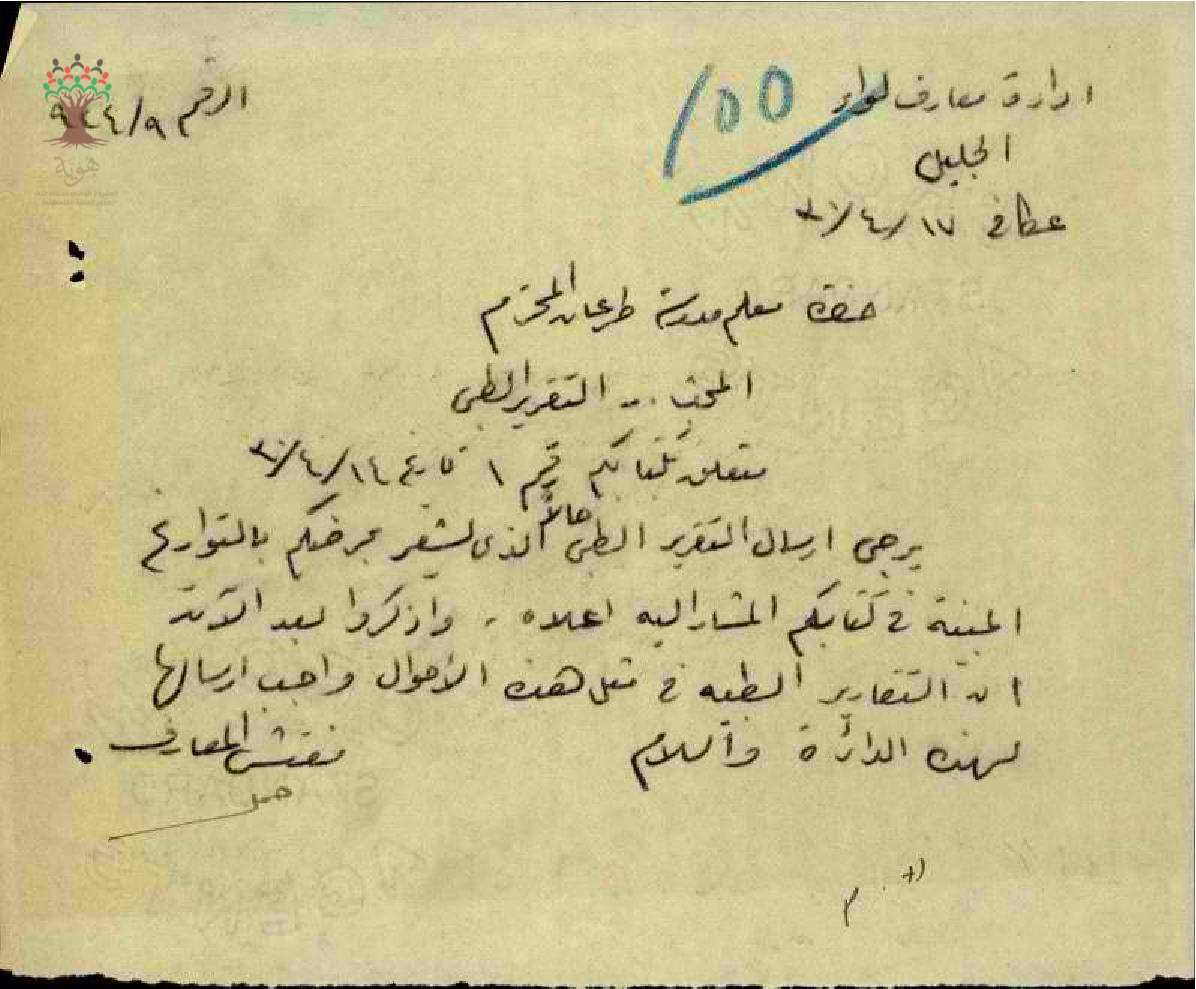 ادارة معارف لواء
الجليل
الرقم ٩٢٤/٩
١٥٥
عكا في ١٧/٤/٣١
حضرة معلم مدرسة طرعان المحترم
المبحث .. التقرير الطبي
متعلق بكتابكم رقم ١ تاريخ ١٤/٤/٣١
يرجى ارسال التقرير الطبي حالاً الذي يشعر بمرضكم بالتواريخ
المبينة في كتابكم المشار اليه اعلاه . واذكروا بعد الآن
ان التقارير الطبيه في مثل هذه الاحوال واجب ارسالها
لهذه الدائرة والسلام
مفتش المعارف
هوية